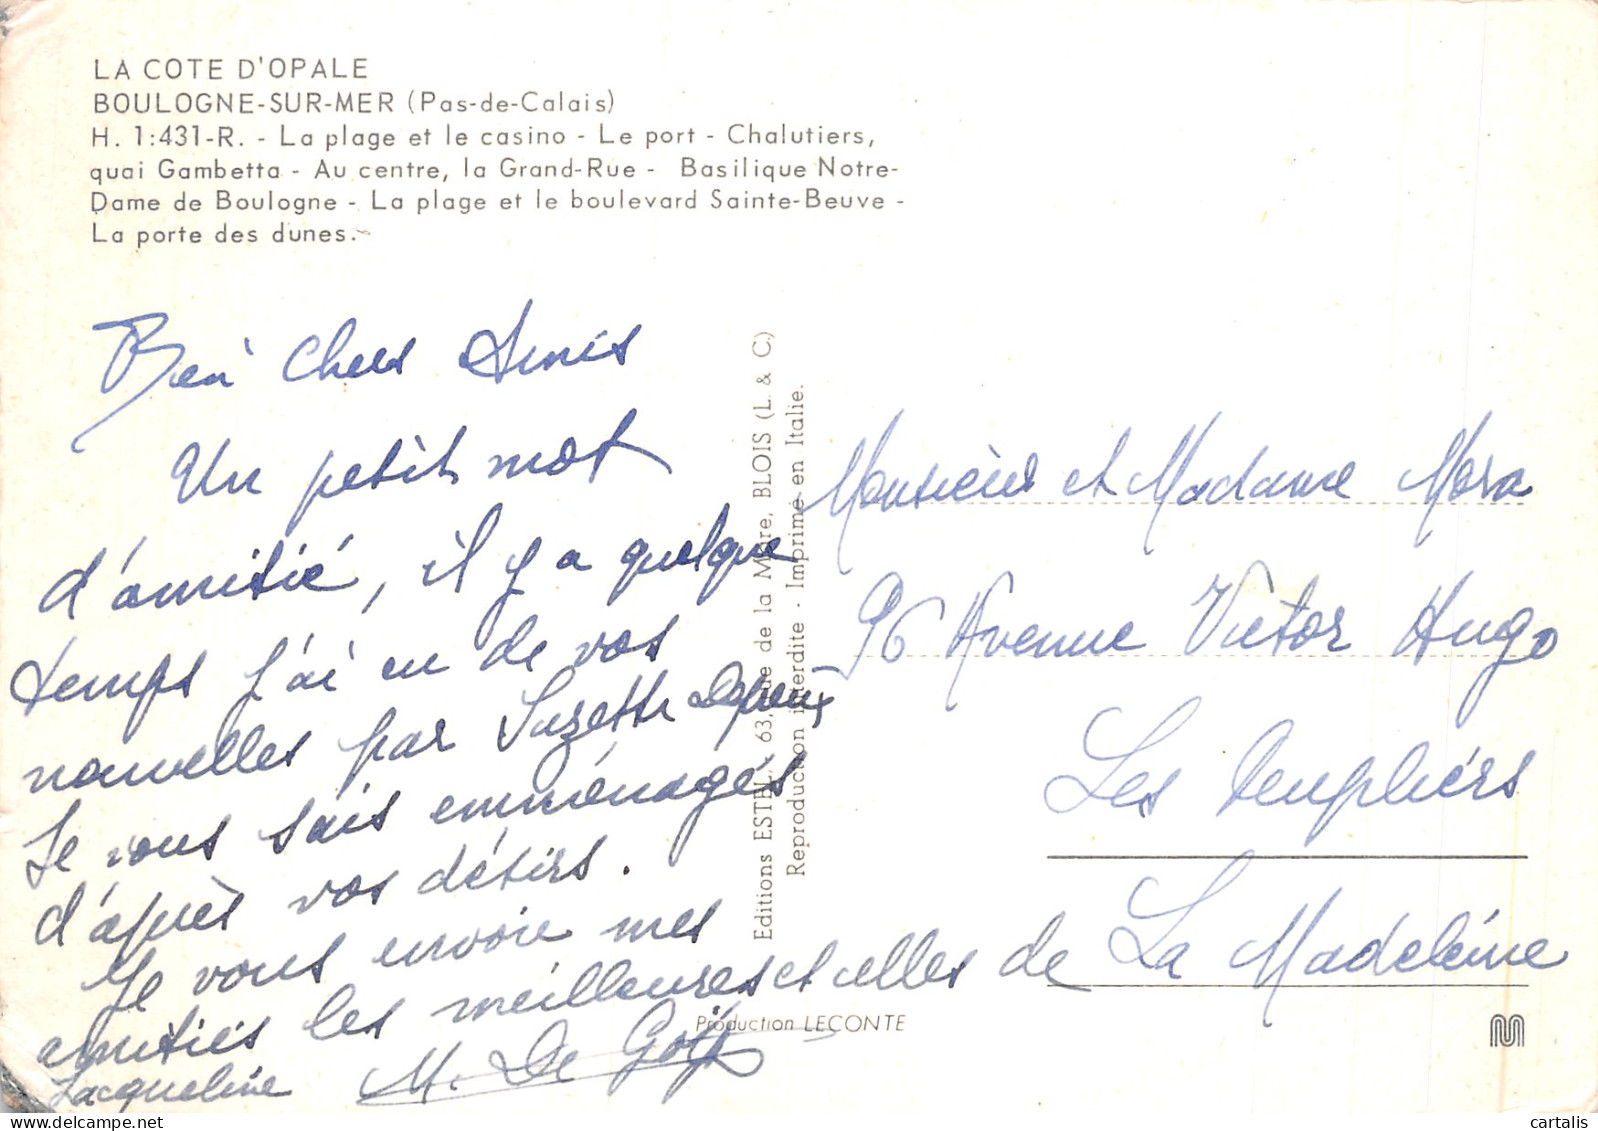 LA COTE D'OPALE
BOULOGNE-SUR-MER (Pas-de-Calais)
H. 1:431-R. - La plage et le casino - Le port - Chalutiers,
quai Gambetta - Au centre, la Grand-Rue - Basilique Notre-
Dame de Boulogne - La plage et le boulevard Sainte-Beuve -
La porte des dunes.
Bien Chers Amis
Un petit mot
d'amitié, il y a quelque
temps j'ai eu de vos
nouvelles par Suzette
Je vous sais emménagés
d'après vos désirs.
Je vous envoie mes
amitiés les meilleures et celles de
Jacqueline M. De
Editions ESTEL, 63, rue de la Mare, BLOIS (L. & C.)
Reproduction interdite - Imprimé en Italie.
Monsieur et Madame Mora
96 Avenue Victor Hugo
Les Templiers
La Madeleine
Production LECONTE
M
cartalis